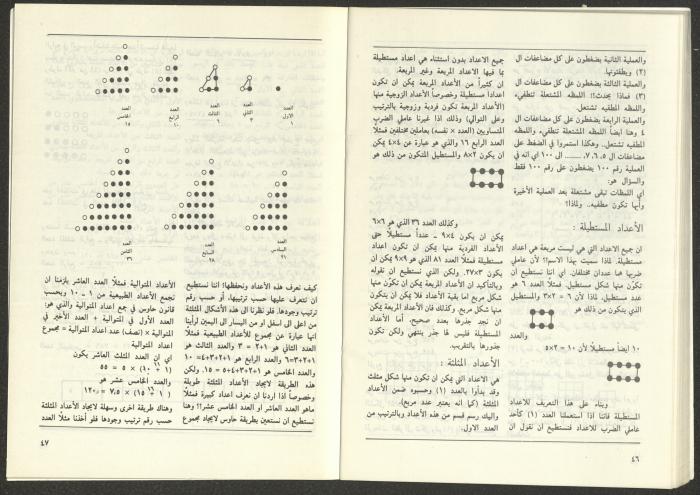 والعملية الثانية يضغطون على كل مضاعفات ال
(٢) ويطفئونها.
والعملية الثالثة يضغطون على كل مضاعفات ال
(٣) فماذا يحدث؟! اللمظه المشتعلة تنطفىء
اللمظه المطفيه تشتعل.
والعملية الرابعة يضغطون على كل مضاعفات ال
٤ وهنا أيضاً اللمظه المشتعلة تنطفىء واللمظه
المطفيه تشتعل.. وهكذا استمروا في الضغط على
مضاعفات ال ٥، ٦، ٧، ........ الى ١٠٠ اي انه في
العملية رقم ١٠٠ يضغطون على رقم ١٠٠ فقط
والسؤال هو:
اي اللمظات تبقى مشتعلة بعد العملية الأخيرة
وأيها تكون مطفيه. ولماذا؟
الأعداد المستطيلة :
ان جميع الاعداد التي هي ليست مربعة هي اعداد
مستطيلة. لماذا سميت بهذا الاسم؟! لأن عاملي
ضربها هما عددان مختلفان. اي اننا نستطيع ان
نكون منها شكل مستطيل. فمثلاً العدد ٦ هو
عدد مستطيل. لماذا لأن ٦ = ٢×٣ والمستطيل
الذي يتكون من ذلك هو
والعدد
١٠ ايضاً مستطيلاً لأن ١٠ = ٢×٥
وبناء على هذا التعريف للاعداد
المستطيلة فاننا اذا استعملنا العدد (١) كأحد
عاملي الضرب للاعداد فنستطيع ان نقول ان
جميع الاعداد بدون استثناء هي اعداد مستطيلة
بما فيها الاعداد المربعة وغير المربعة.
ان كثيراً من الأعداد المربعة يمكن ان تكون
اعداداً مستطيلة وخصوصاً الأعداد الزوجية منها
(الأعداد المربعة تكون فردية وزوجية بالترتيب
وعلى التوالي) وذلك اذا غيرنا عاملي الضرب
المتساويين (العدد × نفسه) بعاملين مختلفين فمثلاً
العدد الرابع ١٦ والذي هو عبارة عن ٤×٤ يمكن
ان يكون ٢×٨ والمستطيل المتكون من ذلك هو
وكذلك العدد ٣٦ الذي هو ٦×٦
يمكن ان يكون ٤×٩ ــ عدداً مستطيلاً حتى
الأعداد الفردية منها يمكن ان تكون اعداد
مستطيلة فمثلاً العدد ٨١ الذي هو ٩×٩ يمكن أن
يكون ٣×٢٧. ولكن الذي نستطيع ان نقوله
وبالتأكيد ان الأعداد المربعة يمكن أن تكوّن منها
شكل مربع اما بقية الأعداد فلا يمكن ان يتكون
منها شكل مربع. وكذلك فان الأعداد المربعة يمكن
ان نجد جذرها بعدد صحيح. أما الأعداد
المستطيلة فليس لها جذر ينتهي ولكن تكون
جذورها بالتقريب.
الأعداد المثلثة :
هي الاعداد التي يمكن ان تكون منها شكل مثلث
وقد بدأوا بالعدد (١) وحسبوه ضمن الأعداد
المثلثة (كما انه يعتبر عدد مربع).
واليك رسم قسم من هذه الأعداد وبالترتيب من
العدد الاول.
٤٦
العدد
الاول
١
العدد
الثاني
٣
العدد
الثالث
٦
العدد
الرابع
١٠
العدد
الخامس
١٥
العدد
السادس
٢١
العدد
السابع
٢٨
العدد
الثامن
٣٦
كيف نعرف هذه الأعداد ونحفظها؟ اننا نستطيع
ان نتعرف عليها حسب ترتيبها، أو حسب رقم
ترتيب وجودها. فلو نظرنا الى هذه الأشكال المثلثة
من اعلى الى اسفل او من اليسار الى اليمين لرأينا
انها عبارة عن مجموع للأعداد الطبيعية فمثلاً
العدد الثاني هو ١+٢ = ٣ والعدد الثالث هو
١+٢+٣=٦ والعدد الرابع هو ١+٢+٣+٤= ١٠
والعدد الخامس هو ١+٢+٣+٤+٥ = ١٥. ولكن
هذه الطريقة لايجاد الأعداد المثلثة طويلة
وخصوصاً اذا اردنا ان نعرف اعداد كبيرة فمثلاً
ماهو العدد العاشر او العدد الخامس عشر؟! وهنا
نستطيع ان نستعين بطريقة حاوس لايجاد مجموع
الأعداد المتوالية فمثلاً العدد العاشر يلزمنا ان
نجمع الأعداد الطبيعية من ١ ــ ١٠ وبحسب
قانون حاوس في جمع اعداد المتوالية والذي هو:
العدد الأول في المتوالية + العدد الأخير في
المتوالية × (نصف) عدد اعداد المتوالية = مجموع
اعداد المتوالية
اي ان العدد المثلث العاشر يكون
(١ + ١٠) × ٥ = ٥٥
والعدد الخامس عشر هو
(١ + ١٥) × ٧,٥ = ١٢٠
وهناك طريقة اخرى وسهلة لايجاد الأعداد المثلثة
حسب رقم ترتيب وجودها فلو أخذنا مثلاً العدد
٤٧